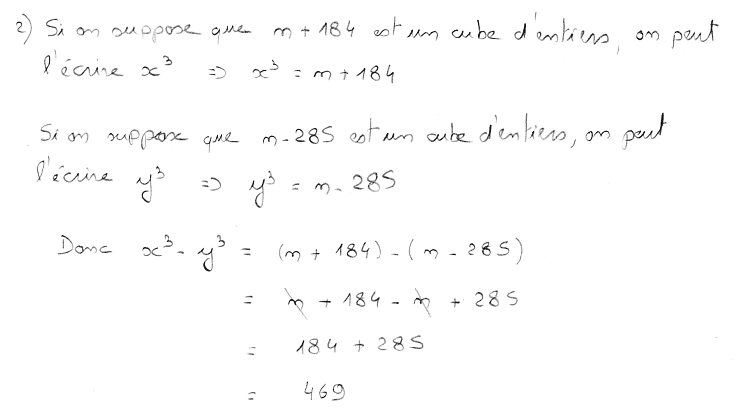 2) Si on suppose que n + 184 est un cube d'entiers, on peut
l'écrire x³ => x³ = n + 184
Si on suppose que n - 285 est un cube d'entiers, on peut
l'écrire y³ => y³ = n - 285
Donc x³ - y³ = (n + 184) - (n - 285)
= n + 184 - n + 285
= 184 + 285
= 469